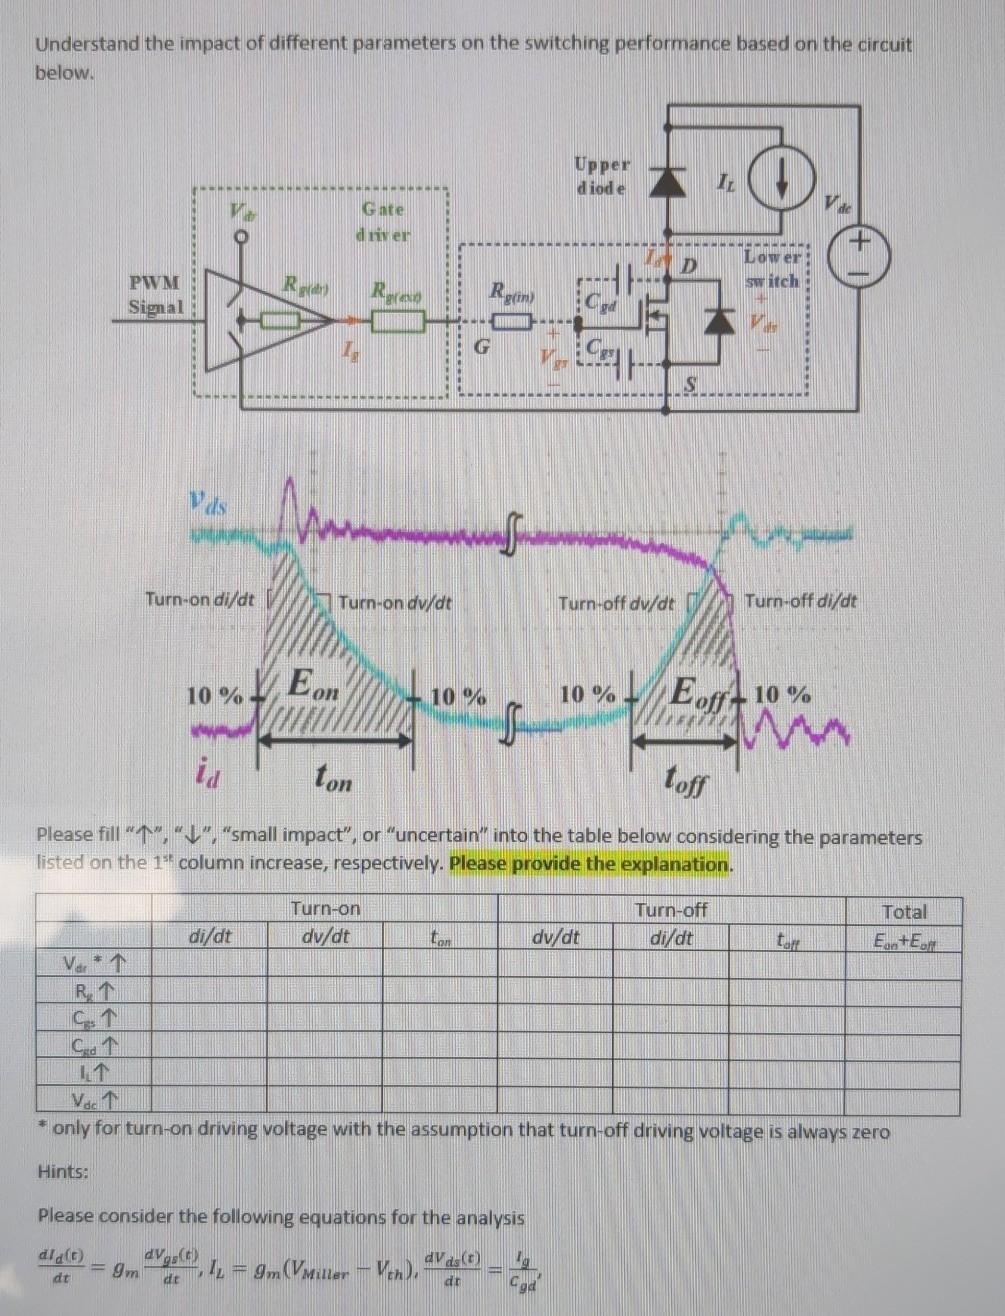 Understand the impact of different parameters on the switching performance based on the circuit
below.
Upper
diode
I_L
V_dc
V_dr
Gate
driver
I_d
D
Lower
switch
PWM
Signal
R_g(dr)
R_g(ext)
R_g(in)
C_gd
+
V_ds
−
I_g
G
+
V_gs
−
C_gs
S
V_ds
Turn-on di/dt
Turn-on dv/dt
Turn-off dv/dt
Turn-off di/dt
10 %
E_on
10 %
10 %
E_off
10 %
i_d
t_on
t_off
Please fill "↑", "↓", "small impact", or "uncertain" into the table below considering the parameters
listed on the 1st column increase, respectively. Please provide the explanation.
Turn-on Turn-off Total
di/dt dv/dt t_on dv/dt di/dt t_off E_on+E_off
V_dr * ↑
R_g ↑
C_gs ↑
C_gd ↑
I_L ↑
V_dc ↑
* only for turn-on driving voltage with the assumption that turn-off driving voltage is always zero
Hints:
Please consider the following equations for the analysis
dI_d(t)/dt = g_m dV_gs(t)/dt, I_L = g_m(V_Miller − V_th), dV_ds(t)/dt = I_g/C_gd,